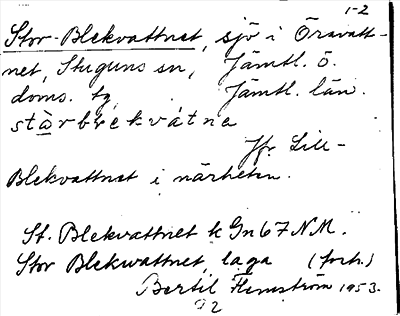 1-2
Stor-Blekvattnet, sjö i Öravatt-
net, Stuguns sn, Jämtl. ö.
doms. tg, Jämtl. län.
stàrbrekvátne
Jfr Lill-
Blekvattnet i närheten.
St. Blekvattnet k Gn67NM.
Stor Blekwattnet, laga (forts.)
Bertil Flemström 1953.
92